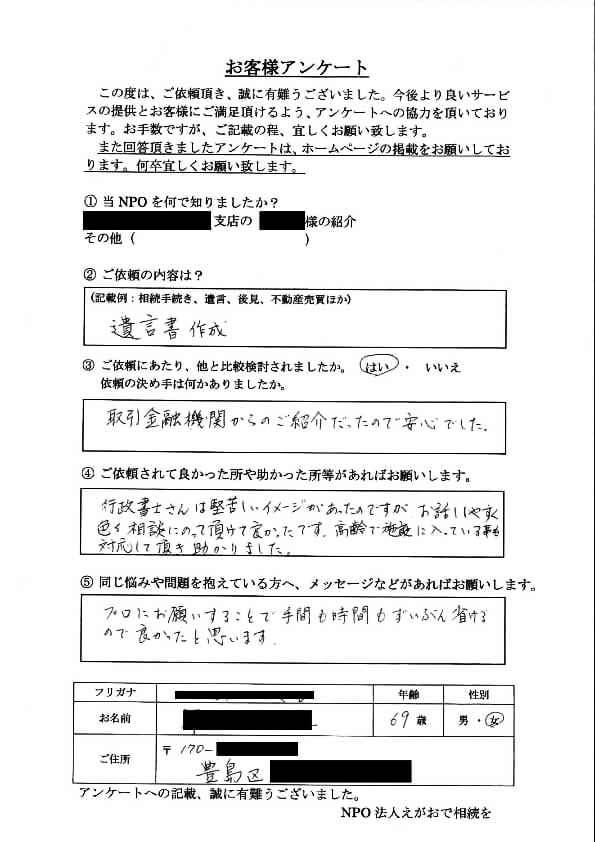 お客様アンケート
この度は、ご依頼頂き、誠に有難うございました。今後より良いサービ
スの提供とお客様にご満足頂けるよう、アンケートへの協力を頂いており
ます。お手数ですが、ご記載の程、宜しくお願い致します。
また回答頂きましたアンケートは、ホームページの掲載をお願いしてお
ります。何卒宜しくお願い致します。
① 当 NPO を何で知りましたか？
支店の 様の紹介
その他（ ）
② ご依頼の内容は？
（記載例：相続手続き、遺言、後見、不動産売買ほか）
遺言書作成
③ ご依頼にあたり、他と比較検討されましたか。 はい ・ いいえ
依頼の決め手は何かありましたか。
取引金融機関からのご紹介だったので安心でした。
④ ご依頼されて良かった所や助かった所等があればお願いします。
行政書士さんは堅苦しいイメージがあったのですが お話しやすく
色々相談にのって頂けて良かったです。高齢で施設に入っている
対応して頂き助かりました。
⑤ 同じ悩みや問題を抱えている方へ、メッセージなどがあればお願いします。
プロにお願いすることで手間も時間もずいぶん省ける
ので良かったと思います.
フリガナ 年齢 性別
お名前 69 歳 男 ・ 女
ご住所 〒 170-
豊島区
アンケートへの記載、誠に有難うございました。
NPO 法人えがおで相続を